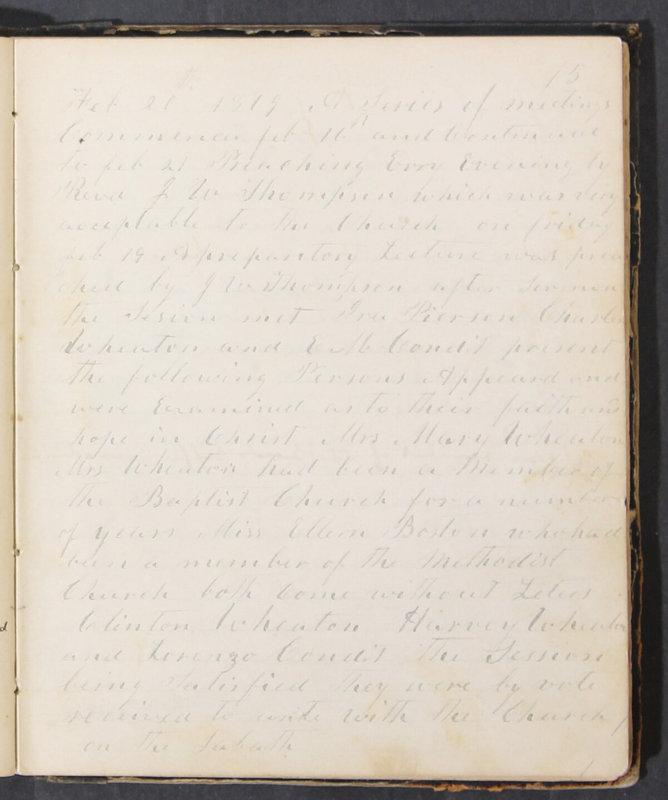 15
Feb 21st 1879 A Series of meetings
Commenced feb 16th and Continued
to feb 21 Preaching Evry Evening by
Revd J W Thompson which was very
acceptable to the Church on friday
feb 19 A preparitory Lecture was prea
ched by J W Thompson after Sermon
the Sesion met Ira Pierson Charles
Wheaton and E M Condit present
the following Persons Appeard and
were Examined as to their faith and
hope in Christ Mrs Mary Wheaton
Mrs Wheaton had been a Member of
the Baptist Church for a number
of years Miss Ellen Boston who had
been a member of the Methodist
Church both Come without Leters
Clinton Wheaton Harvey Wheaton
and Lorenzo Condit the Session
being Satisfied they were by vote
received to unite with the Church
on the Sabath